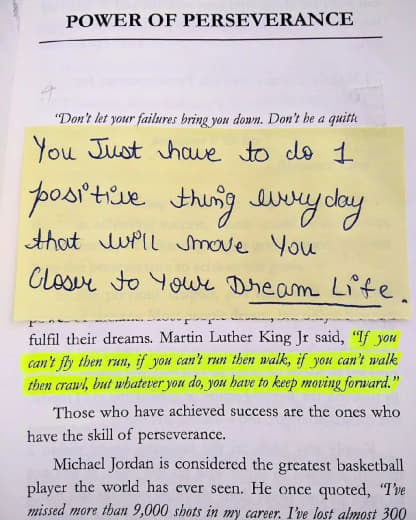 POWER OF PERSEVERANCE
"Don't let your failures bring you down. Don't be a
You Just have to do 1
positive thing everyday
that will move You
Closer to Your Dream Life.
fulfil their dreams. Martin Luther King Jr said, "If you
can't fly then run, if you can't run then walk, if you can't walk
then crawl, but whatever you do, you have to keep moving forward."
Those who have achieved success are the ones who
have the skill of perseverance.
Michael Jordan is considered the greatest basketball
player the world has ever seen. He once quoted, "I've
missed more than 9,000 shots in my career. I've lost almost 300